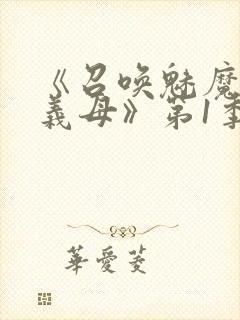 《召唤魅魔
義母》第1季
華愛菱